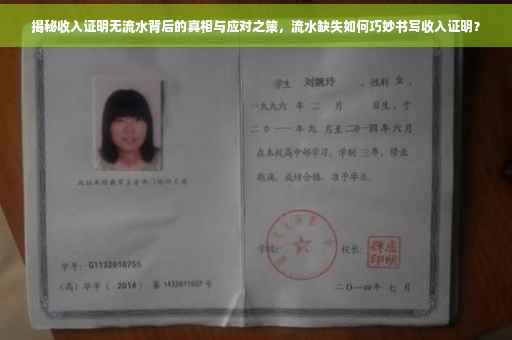 揭秘收入证明无流水背后的真相与应对之策，流水缺失如何巧妙书写收入证明？
学生 刘婉玲 ，性别 女 ，
一九九六 年 二 月 日生，于
二〇一一年九 月至二〇一四年 六 月
在本校高中部学习，学制 三年，修业
期满，成绩合格，准予毕业。
学校：
校长：
学号：G1132010755
（高）毕字（ 2014 ）第 1432011007 号
二〇一四年 七 月